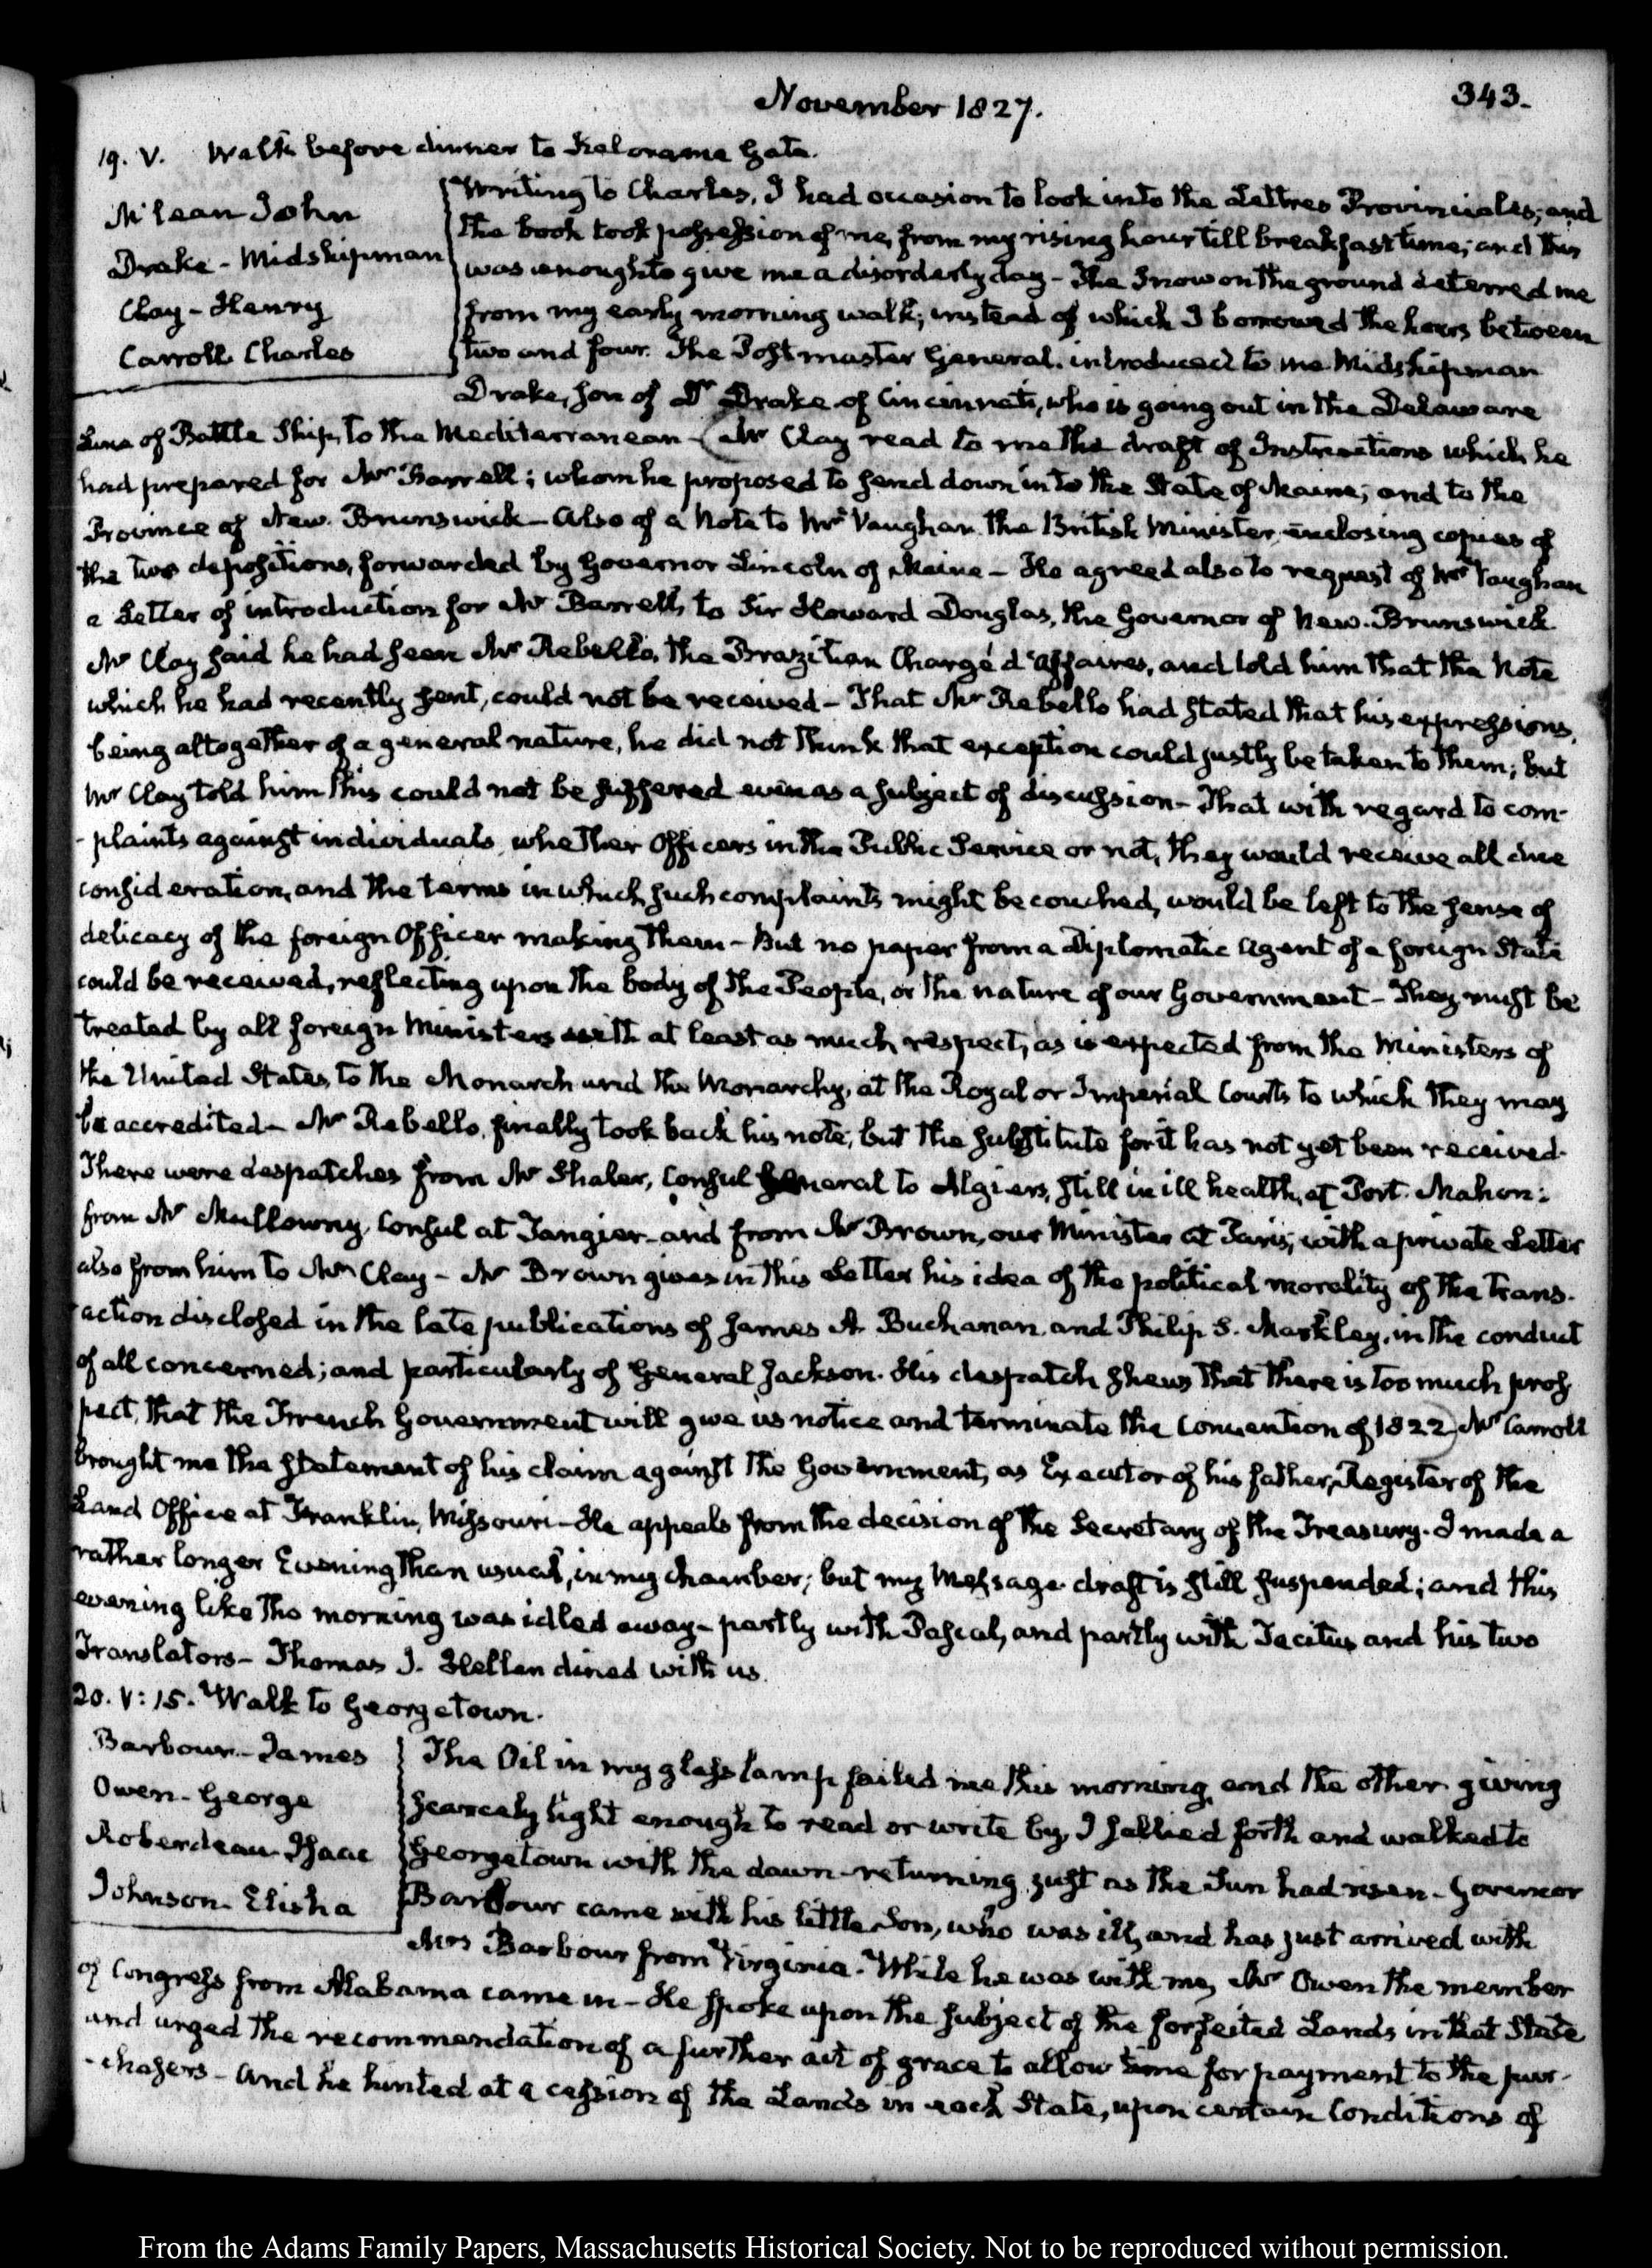 November 1827.
343.
19. V. Walk before dinner to Kalorama Gate.
McLean John
Drake - Midshipman
Clay - Henry
Carroll Charles
Writing to Charles, I had occasion to look into the Lettres Provinciales, and
the book took possession of me, from my rising hour till breakfast time; and this
was enough to give me a disorderly day - The Snow on the ground deterred me
from my early morning walk; instead of which I borrowed the hours between
two and four. The Postmaster General. introduced to me Midshipman
Drake, son of Dr Drake of Cincinnati, who is going out in the Delaware
Line of Battle Ship, to the Mediterranean - (Mr Clay read to me the draft of Instructions which he
had prepared for Mr Barrell; whom he proposed to send down into the State of Maine, and to the
Province of New-Brunswick - Also of a Note to Mr Vaughan the British Minister enclosing copies of
the two depositions, forwarded by Governor Lincoln of Maine - He agreed also to request of Mr Vaughan
a Letter of introduction for Mr Barrell, to Sir Howard Douglas, the Governor of New-Brunswick
Mr Clay said he had seen Mr Rebello, the Brazilian Chargé d'affaires, and told him that the Note
which he had recently sent, could not be received - That Mr Rebello had stated that his expressions,
being altogether of a general nature, he did not think that exception could justly be taken to them; but
Mr Clay told him this could not be suffered even as a subject of discussion - That with regard to com-
-plaints against individuals, whether Officers in the Public Service or not, they would receive all due
consideration, and the terms in which such complaints might be couched, would be left to the sense of
delicacy of the foreign Officer making them - But no paper from a Diplomatic Agent of a foreign State
could be received, reflecting upon the body of the People, or the nature of our Government - They must be
treated by all foreign Ministers with at least as much respect, as is expected from the Ministers of
the United States to the Monarch and the Monarchy, at the Royal or Imperial Courts to which they may
be accredited - Mr Rebello, finally took back his note, but the substitute for it has not yet been received.
There were despatches from Mr Shaler, Consul General to Algiers, still in ill health, at Port-Mahon:
from Mr Mullowny, Consul at Tangier - and from Mr Brown, our Minister at Paris, with a private Letter
also from him to Mr Clay - Mr Brown gives in this Letter his idea of the political morality of the trans-
action disclosed in the late publications of James A. Buchanan and Philip S. Markley, in the conduct
of all concerned; and particularly of General Jackson. His despatch shews that there is too much pros
pect, that the French Government will give us notice and terminate the Convention of 1822) Mr Carroll
brought me the statement of his claim against the Government, as Executor of his father, Register of the
Land Office at Franklin, Missouri - He appeals from the decision of the Secretary of the Treasury. I made a
rather longer Evening than usual, in my chamber; but my Message draft is still suspended; and this
evening like the morning was idled away - partly with Pascal, and partly with Tacitus and his two
Translators - Thomas J. Hellen dined with us.
20. V: 15. Walk to Georgetown.
Barbour - James
Owen - George
Roberdeau Isaac
Johnson - Elisha
The Oil in my glass lamp failed me this morning, and the other giving
scarcely light enough to read or write by, I sallied forth and walked to
Georgetown with the dawn - returning just as the Sun had risen - Governor
Barbour came with his little Son, who was ill, and has just arrived with
Mrs Barbour from Virginia. While he was with me, Mr Owen the member
of Congress from Alabama came in - He spoke upon the subject of the forfeited Lands in that State
and urged the recommendation of a further act of grace to allow time for payment to the pur-
-chasers - And he hinted at a cession of the Lands in each State, upon certain Conditions of
From the Adams Family Papers, Massachusetts Historical Society. Not to be reproduced without permission.